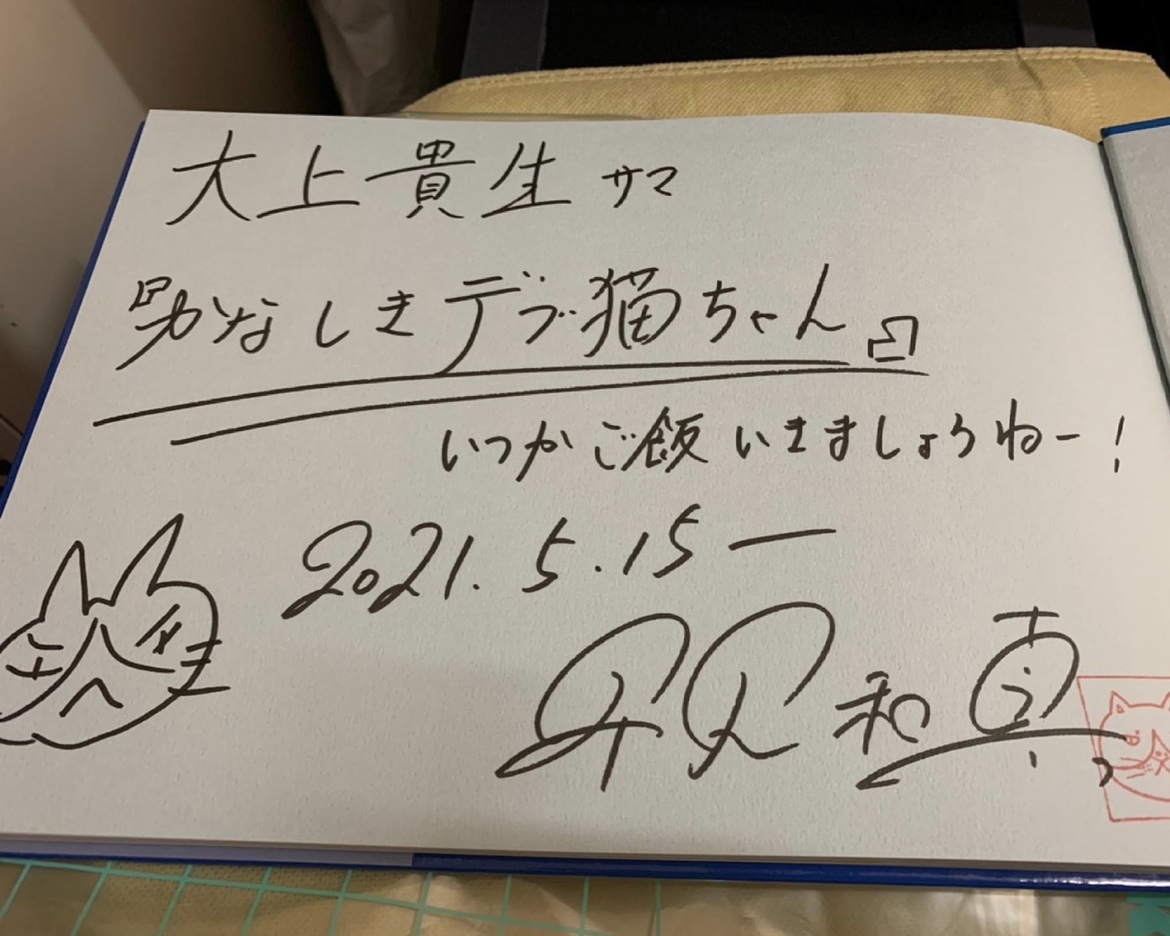 大上貴生 サマ
『かなしきデブ猫ちゃん』
いつかご飯いきましょうねー!
2021.5.15
早見和真